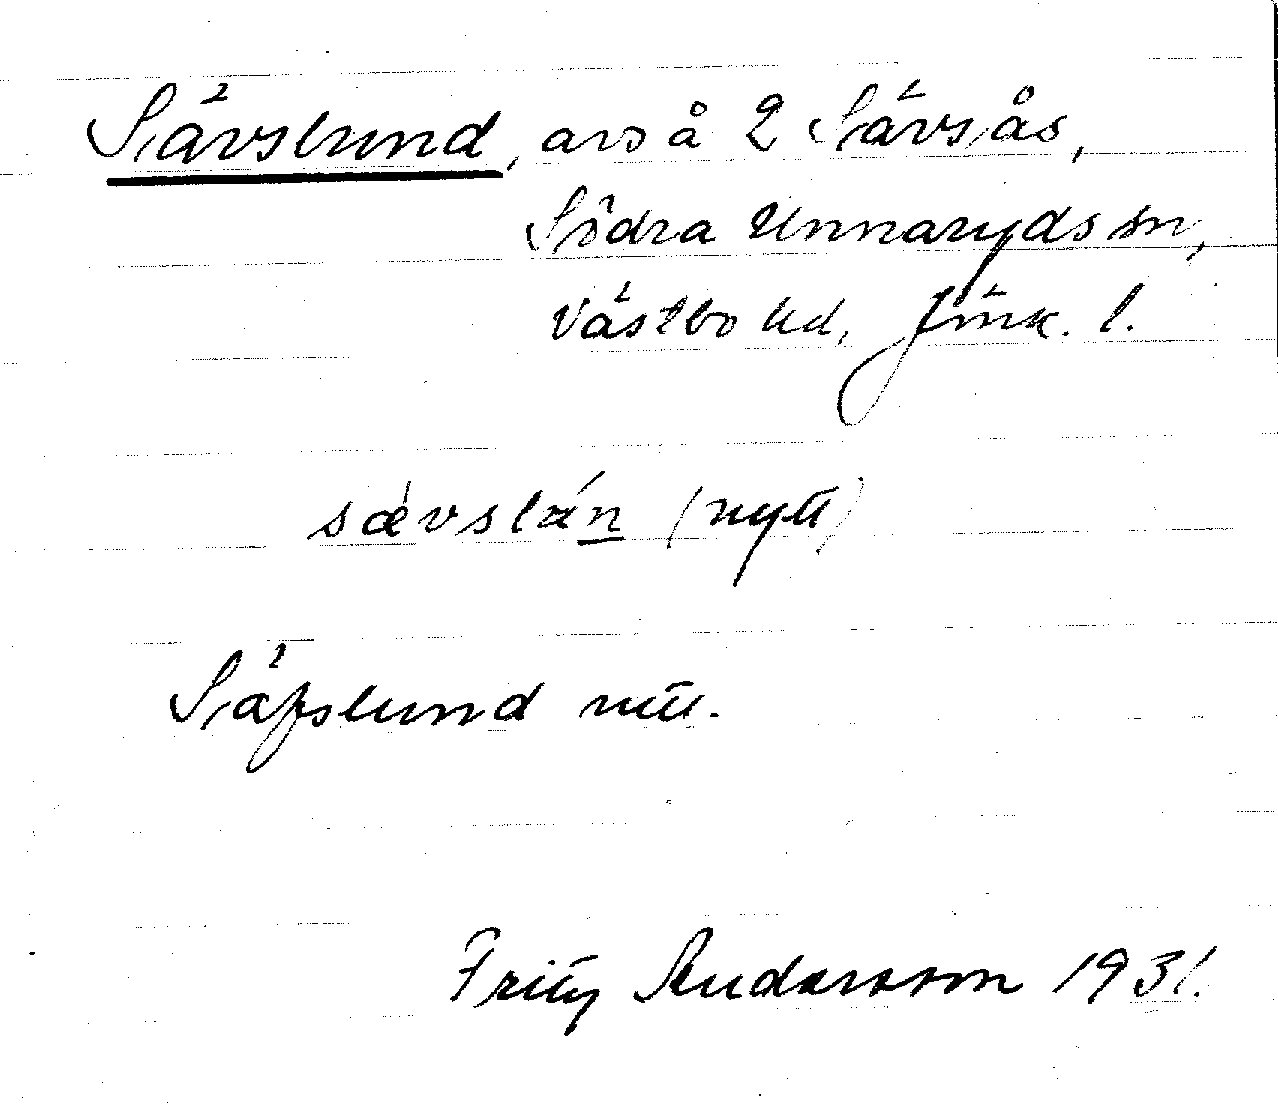 Sävslund, avs å 2 Sävsås,
Södra Unnaryds sn,
Västbo hd, Jönk. l.
sǽvslán (nytt)
Säfslund
Fritz Andersson 1931.